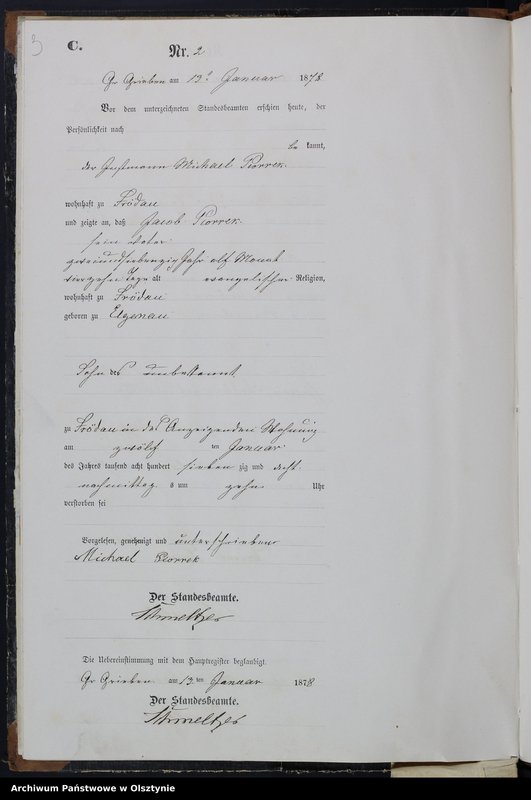 3
C.
Nr. 2
Gr Grieben am 13t Januar 1878
Vor dem unterzeichneten Standesbeamten erschien heute, der
Persönlichkeit nach
be kannt,
der Instmann Michael Piorrek
wohnhaft zu Frödau
und zeigte an, daß Jacob Piorrek
sein Vater
zweiundsiebenzig Jahr elf Monat
vierzehn Tage alt evangelischer Religion,
wohnhaft zu Frödau
geboren zu Elgenau
Sohn des unbekannt
zu Frödau in des Anzeigenden Wohnung
am zwölf ten Januar
des Jahres tausend acht hundert sieben zig und acht
nachmittag s um zehn Uhr
verstorben sei
Vorgelesen, genehmigt und unterschrieben
Michael Piorrek
Der Standesbeamte.
Die Uebereinstimmung mit dem Hauptregister beglaubigt.
Gr Grieben am 13 ten Januar 1878
Der Standesbeamte.
Archiwum Państwowe w Olsztynie